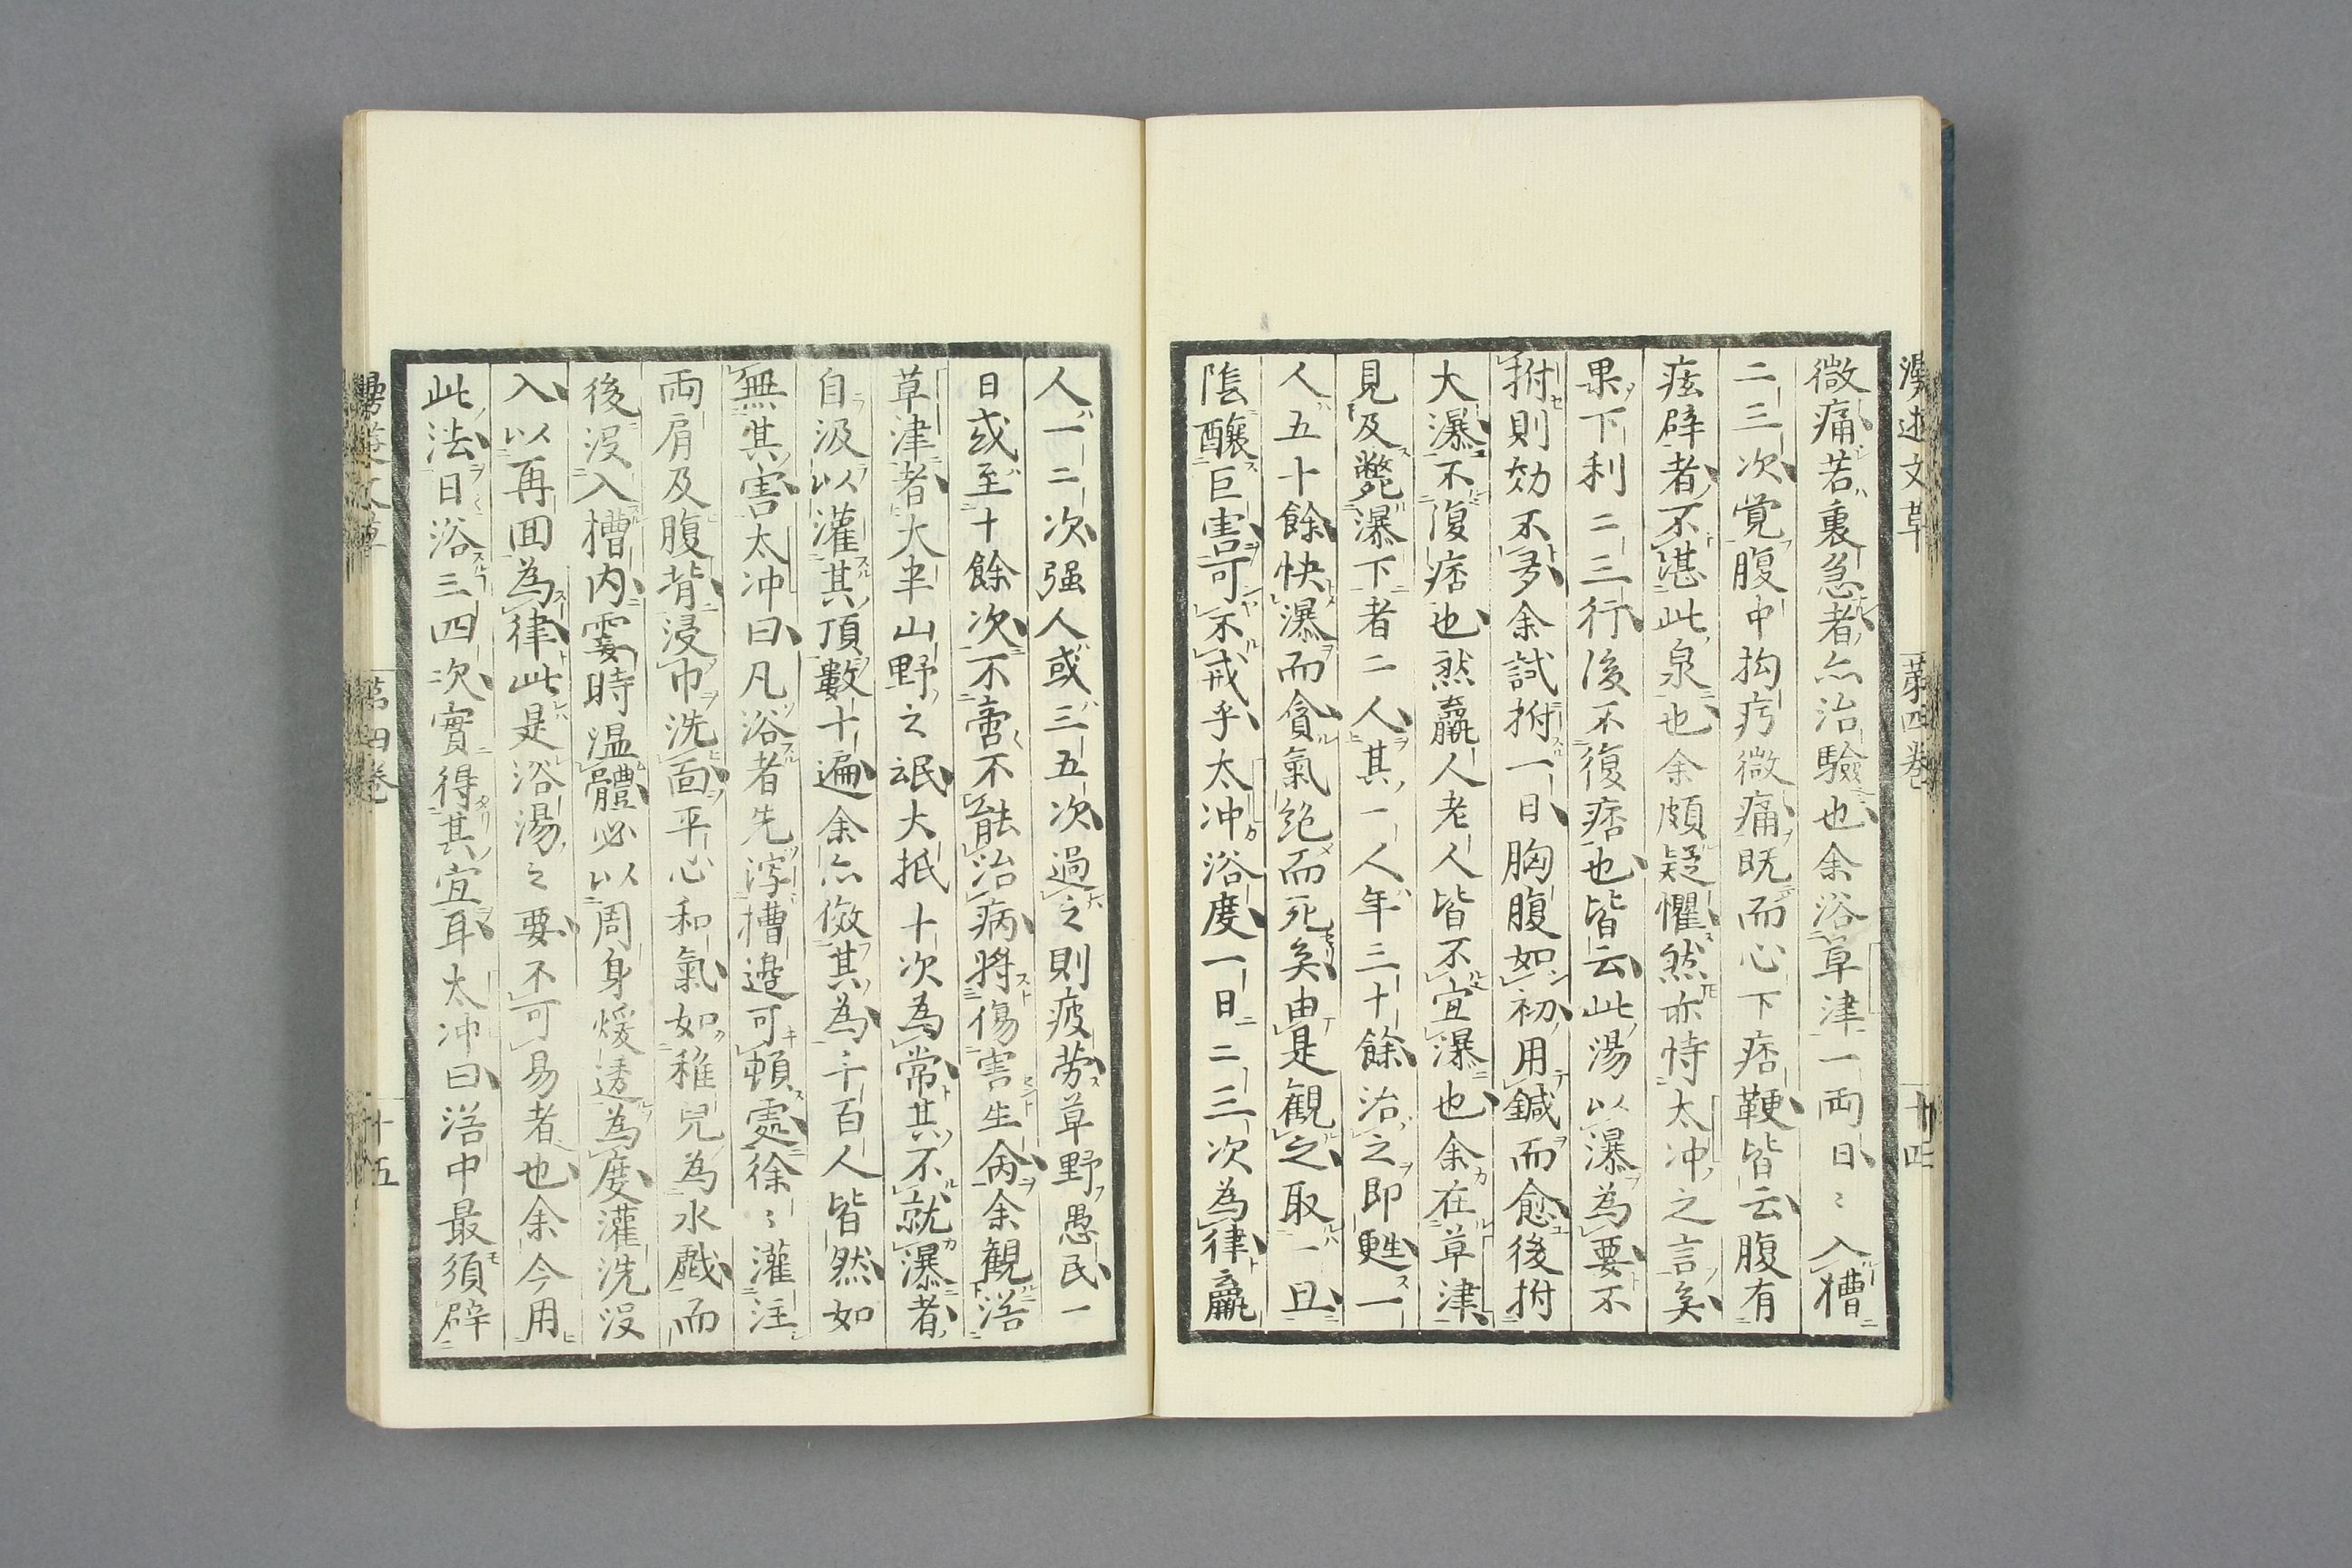 漫遊文草
第四卷
十四
微痛若裏急者亦治驗也余浴草津一両日〻入槽
二三次覚腹中拘痀微痛既而心下痞鞕皆云腹有
痃癖者不堪此泉也余頗疑懼然亦恃太冲之言矣
果下利二三行後不復痞也皆云此湯以瀑為要不
拊則効不多余試拊一日胸腹如初用鍼而愈後拊
大瀑不復痞也然羸人老人皆不宜瀑也余在草津
見及斃瀑下者二人其一人年三十餘治之即甦一
人五十餘快瀑而貪氣絶而死矣由是観之取一旦
陰釀巨害可不戒乎太冲浴度一日二三次為律羸
人一二次强人或三五次過之則疲労草野愚民一
日或至十餘次不啻不能治病将傷害生命余観浴
草津者大半山野之氓大抵十次為常其不就瀑者
自汲以灌其頂數十遍余亦倣其為千百人皆然如
無其害太冲曰凡浴者先深槽邉可頓處徐〻灌注
両肩及腹背浸巾洗面平心和氣如稚兒為水戯而
後没入槽内霎時温體必以周身煖透為度灌洗没
入以再囬為律此是浴湯之要不可易者也余今用
此法日浴三四次實得其宜耳太冲曰浴中最須辟
漫遊文草
第四卷
十五